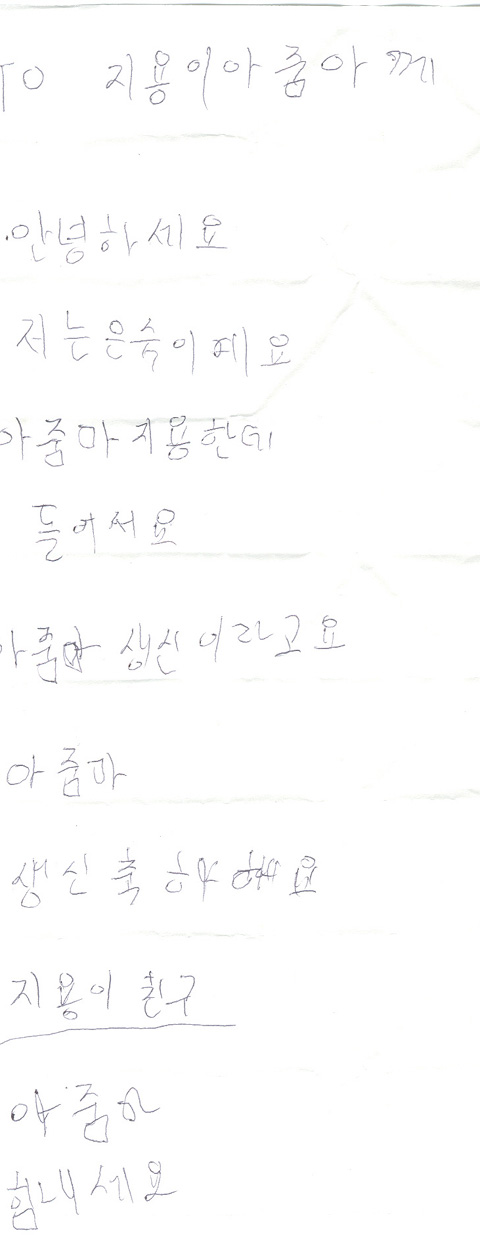 TO 지용이아줌아께
안녕하세요
저는은숙이예요
아줌마지용한데
들어서요
아줌마 생신이라고요
아줌마
생신축하해요
지용이 친구
아줌마
힘내세요